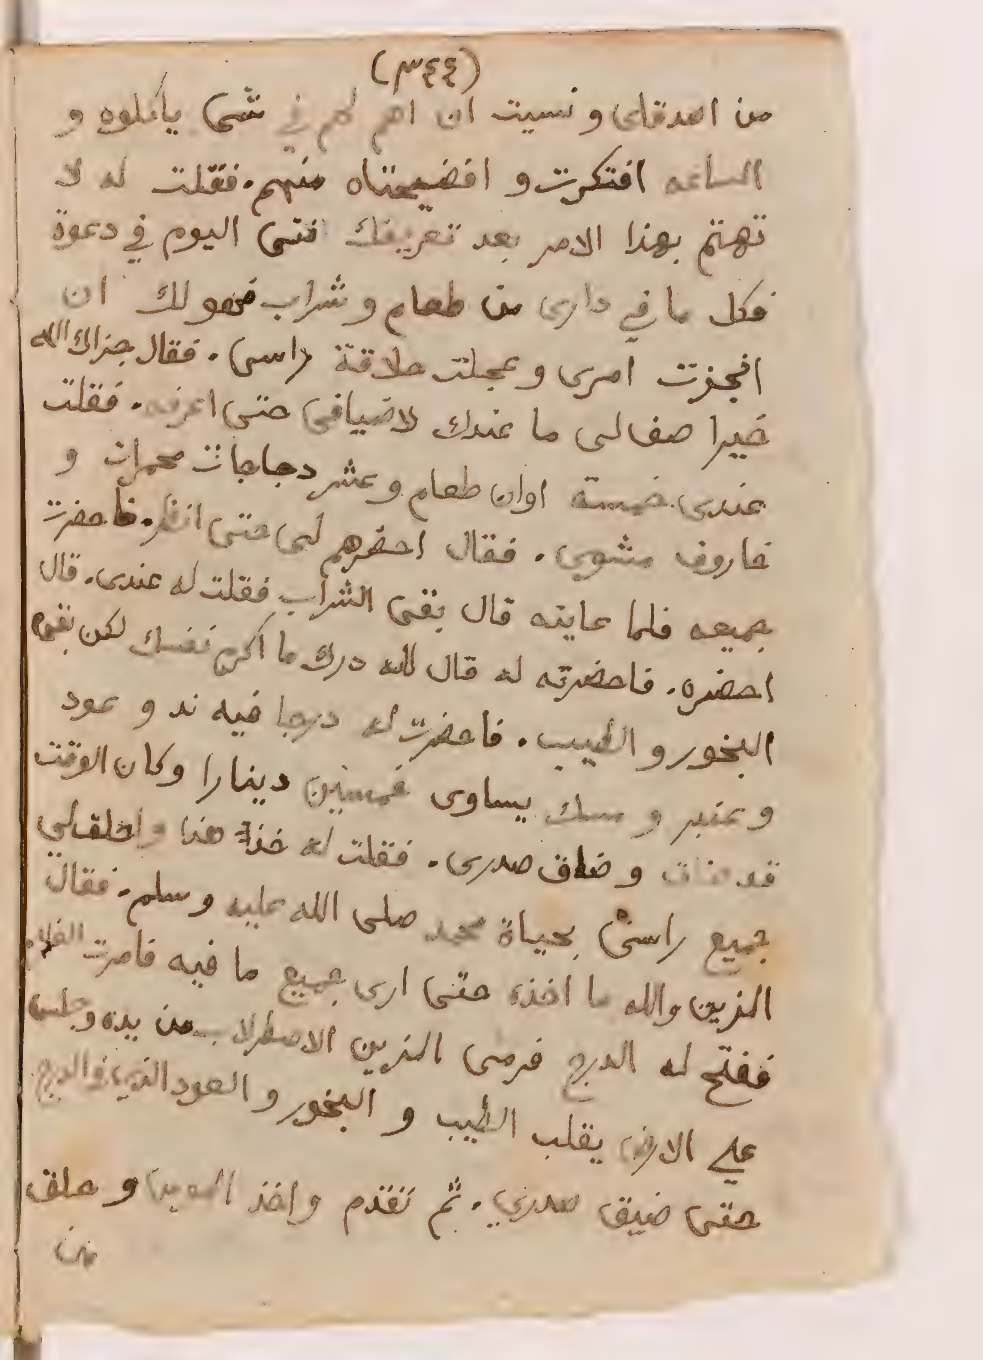 (٣٤٤)
من اصدقاى و نسيت ان اهم لهم في شى ياكلوه و
الساعه افتكرت و افضيحتاه منهم. فقلت له لا
تهتم بهذا الامر بعد تعريفك انى اليوم في دعوة
فكل ما في دارى من طعام و شراب فهو لك ان
انجزت امرى و عجلت حلاقة راسى. فقال جزاك الله
خيرا صف لى ما عندك لاضيافى حتى اعرفه. فقلت
عندى خمسة اوان طعام و عشر دجاجات محمرات و
خاروف مشوى. فقال احضرهم لى حتى انظر. فاحضرت
جميعه فلما عاينه قال بقى الشراب فقلت له عندى. قال
احضره. فاحضرته له قال لله درك ما اكرم نفسك لكن بقى
البخور و الطيب. فاحضرت له درجا فيه ند و عود
و عنبر و مسك يساوى خمسين دينارا وكان الوقت
قد ضاق و ضاق صدرى. فقلت له خذ هذا و احلق لي
جميع راسى بحياة محمد صلى الله عليه وسلم. فقال
المزين والله ما اخذه حتى ارى جميع ما فيه فامرت الغلام
ففتح له الدرج فرمى المزين الاصطرلاب من يده وجلس
علي الارض يقلب الطيب و البخور و العود الذي في الدرج
حتى ضيق صدري. ثم تقدم واخذ الموس و حلق
من